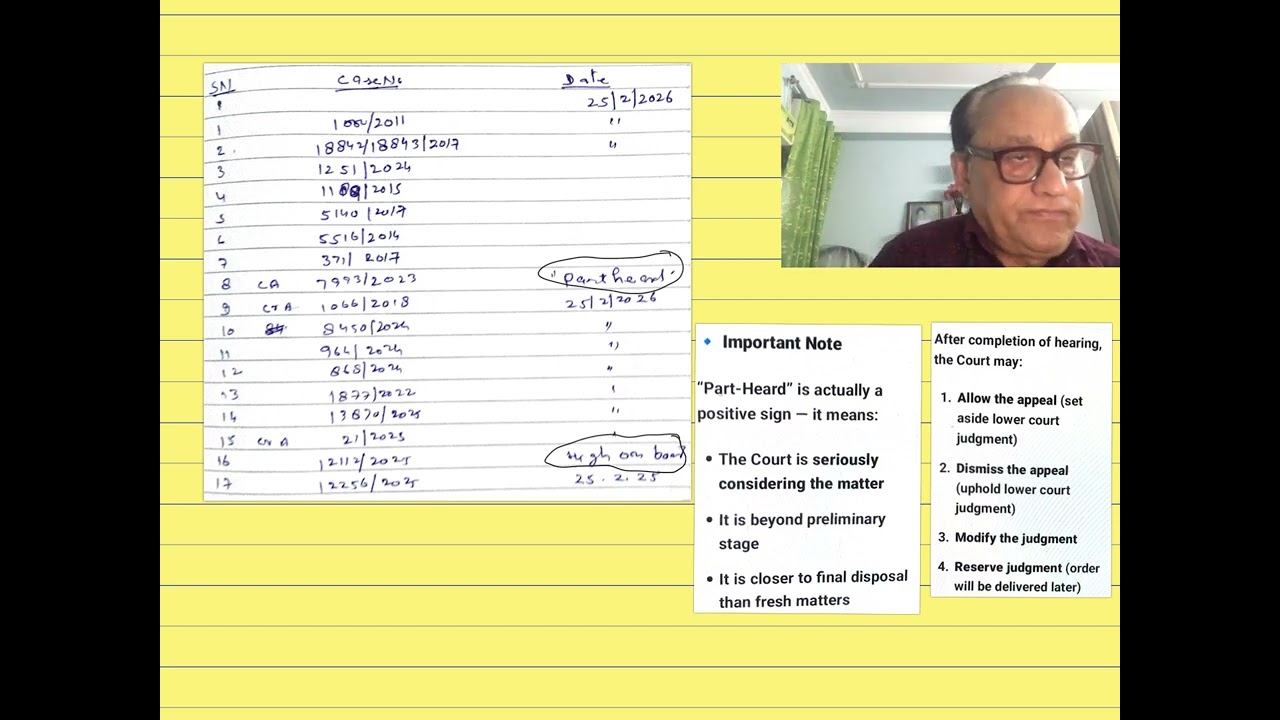 SN Case No Date
25/2/2026
1 /2011 "
2. 18842/18843/2017 "
3 1251/2024
4 /2015
5 5140/2017
6 5516/2014
7 371/2017
8 CA 7993/2023 "part heard"
9 Cr A 1066/2018 25/2/2026
10 8450/2024 "
11 964/2024 "
12 868/2024 "
13 1877/2022 "
14 13670/2025 "
15 Cr A 21/2025 "
16 12112/2025 High on board
17 12256/2025 25.2.25
Important Note
“Part-Heard” is actually a
positive sign — it means:
• The Court is seriously
considering the matter
• It is beyond preliminary
stage
• It is closer to final disposal
than fresh matters
After completion of hearing,
the Court may:
1. Allow the appeal (set
aside lower court
judgment)
2. Dismiss the appeal
(uphold lower court
judgment)
3. Modify the judgment
4. Reserve judgment (order
will be delivered later)